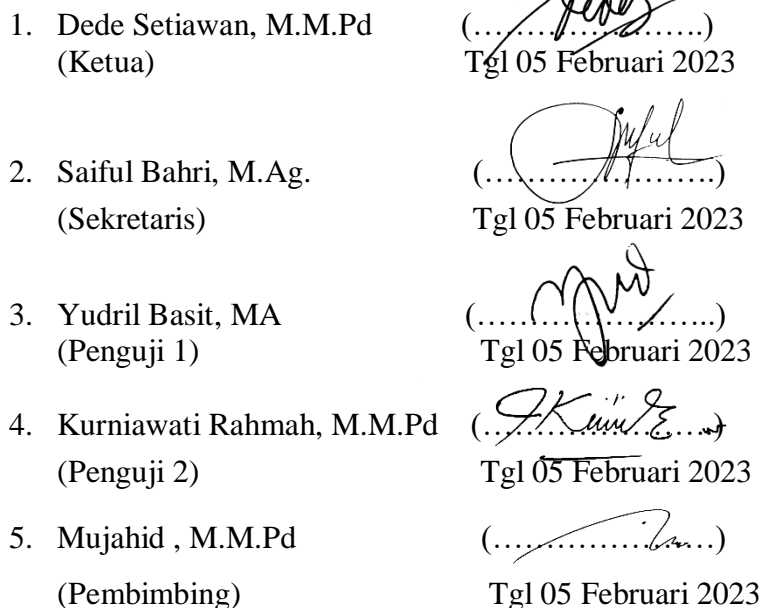 1. Dede Setiawan, M.M.Pd (………………….)
(Ketua) Tgl 05 Februari 2023
2. Saiful Bahri, M.Ag. (………………….)
(Sekretaris) Tgl 05 Februari 2023
3. Yudril Basit, MA (…………………..)
(Penguji 1) Tgl 05 Februari 2023
4. Kurniawati Rahmah, M.M.Pd (………………….)
(Penguji 2) Tgl 05 Februari 2023
5. Mujahid , M.M.Pd (………………….)
(Pembimbing) Tgl 05 Februari 2023